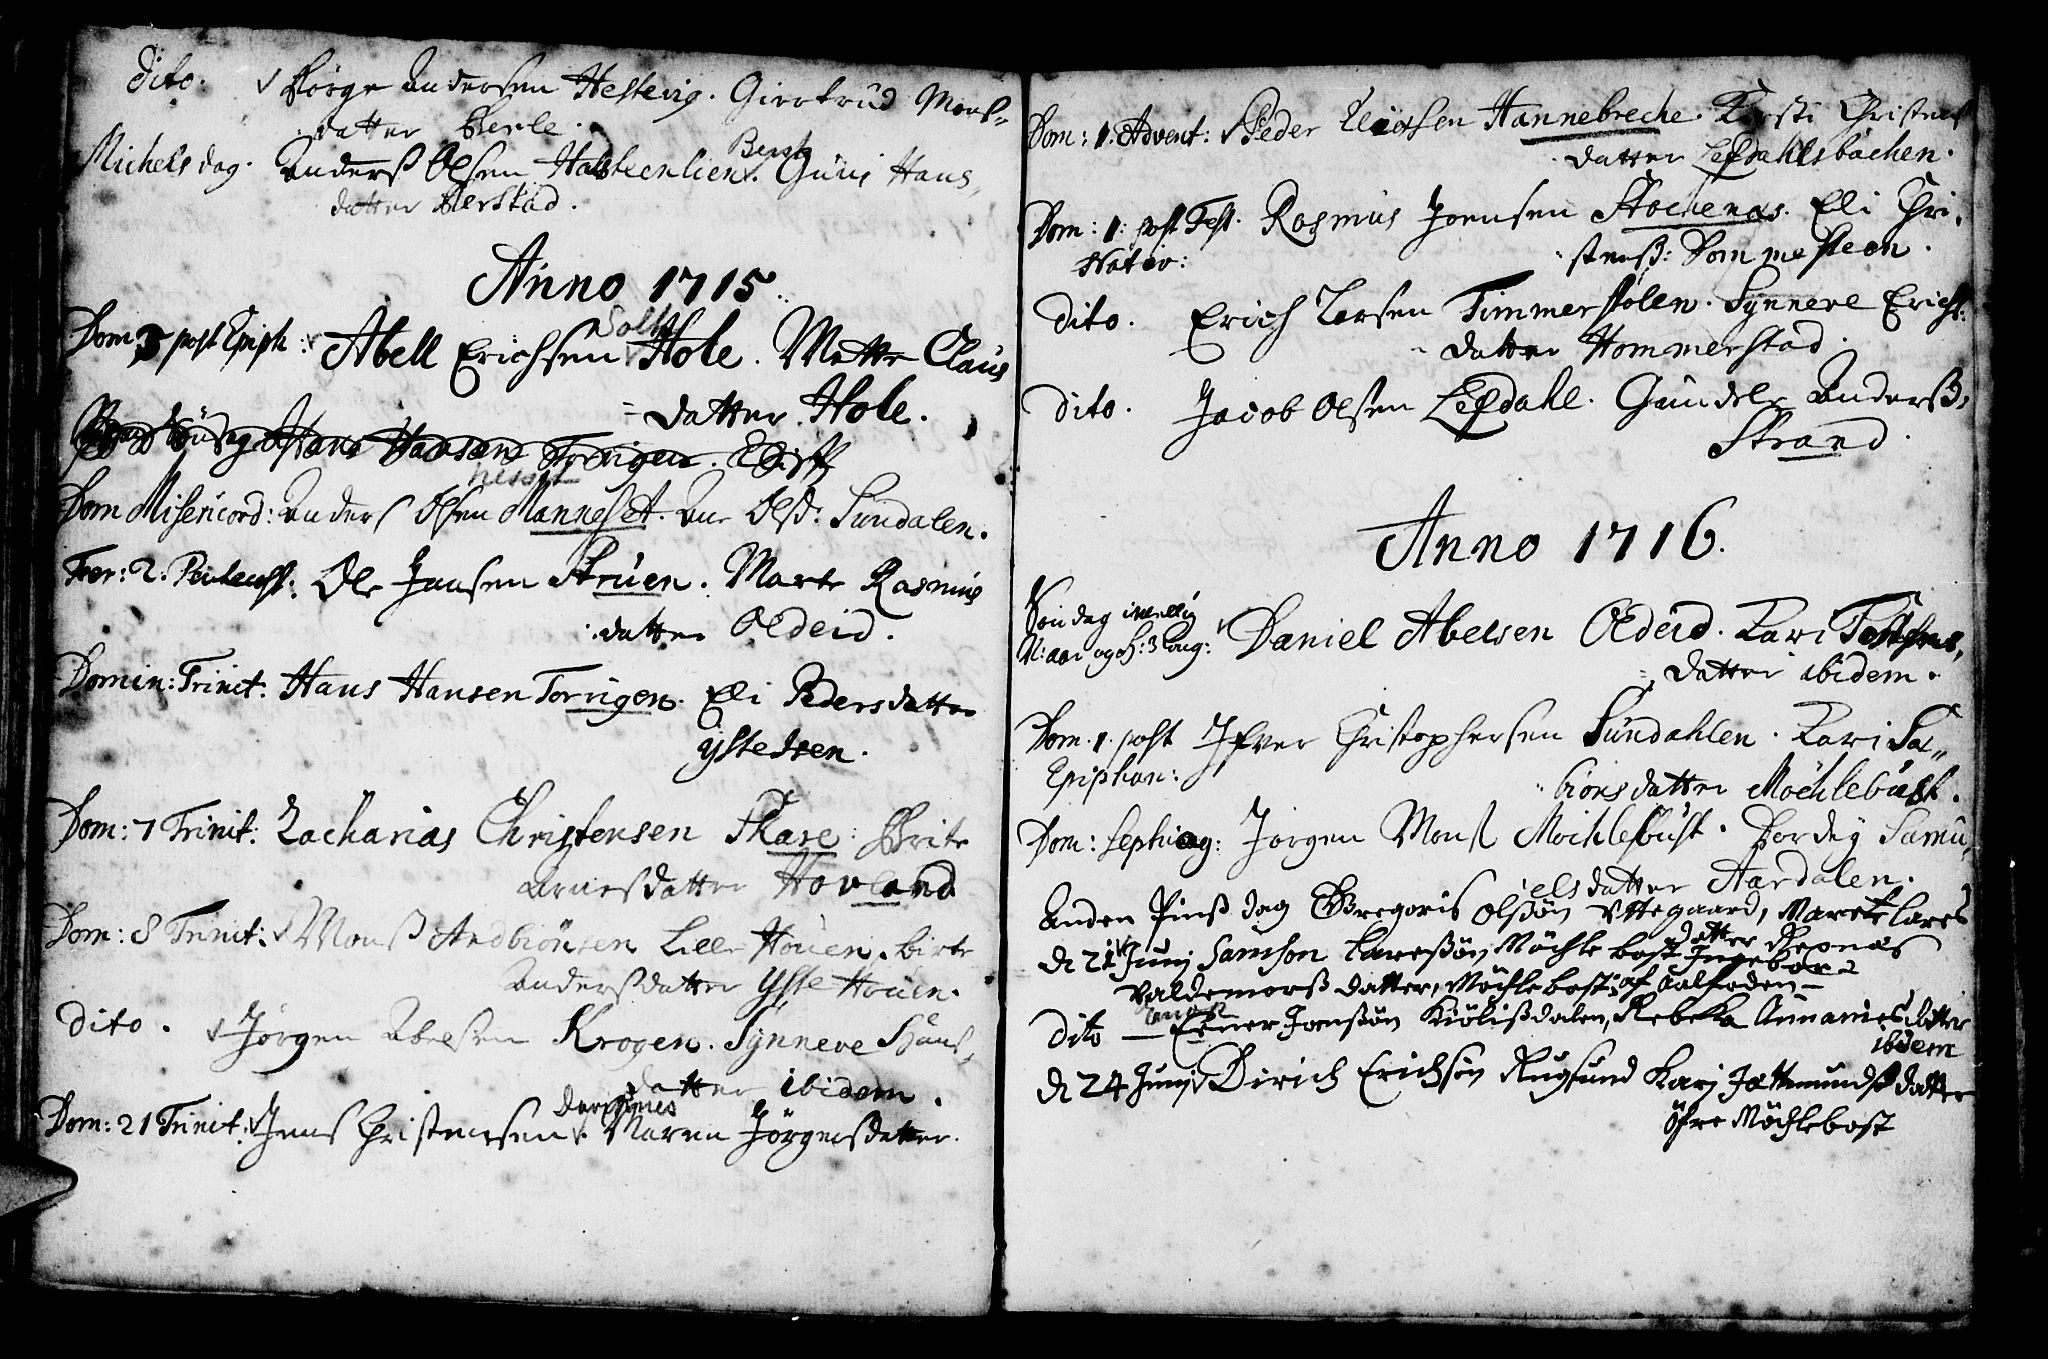 Dito. Børge Andersen Hestevig. Giertrud Mons=
datter Berle.
Michels dag. Anders Olsen Hafsteenlien. Guri Hans,
datter Berstad.
Anno 1715.
Dom 3 post Epiph: Abell Erichsen Hole. Mette Claus
=datter Hole.
Hans Hansen Torrigen.
Dom Misericord: Anders Olsen Manneset. Ane Olsd: Sundalen.
Fer: 2. Pentecost: Ole Jansen Struen. Marte Rasmus
datter Oldeid.
Domin: Trinit: Hans Hansen Torrigen. Eli Pedersdatter
Ysteheen.
Dom: 7 Trinit: Zacharias Christensen Skare: Brite
Arnesdatter Hovland
Dom: 8 Trinit: Monß Andbiönsen Lille Houen. birte
Andersdatter Yste Houen.
dito. Jörgen Abelsen Krogen. Synneve Hans,
datter ibidem.
Dom: 21 Trinit: Jens Christensen. Maren Jörgensdatter.
Dom: 1. Advent: Peder Hannebreche. Kirsti Christens
datter Lefdahlsbachen.
Dom: 1: post Fest. Rasmus Joensen Stochenes. Eli Chri,
Nativ: stenß: Dommesteen.
dito. Erich Larsen Timmerstolen. Synneve Erichs:
datter Hommerstad.
dito. Jacob Olsen Lefdahl. Gundele Anderß,
Strand.
Anno 1716.
Söndag imellig
N: aar og H: 3 Kong: Daniel Abelsen Oldeid. Kari
datter ibidem.
Dom. 1. post Ifver Christophersen Sundahlen. Kari Tor=
Epiphan: biörsdatter Möchlebust.
Dom: Septuag: Jorgen Monß Mochlebust. Dordey Samu,
elsdatter Aardalen.
Anden Pinß dag Gregoris Olßön Yttegaard, Marete Lares
datter Repnæs
d 21 Junj Samson Laresßön Möchlebost Ingebor
Valdemorß datter, Möchlebost: af Aalfoden
dito — Einer Jonßön Kiölißdalen, Rebeka Annanies datter
ibidem
d 24 Junj Dirich Erichsön Rugsund Kari Jettmundß datter
öfre Möchlebost